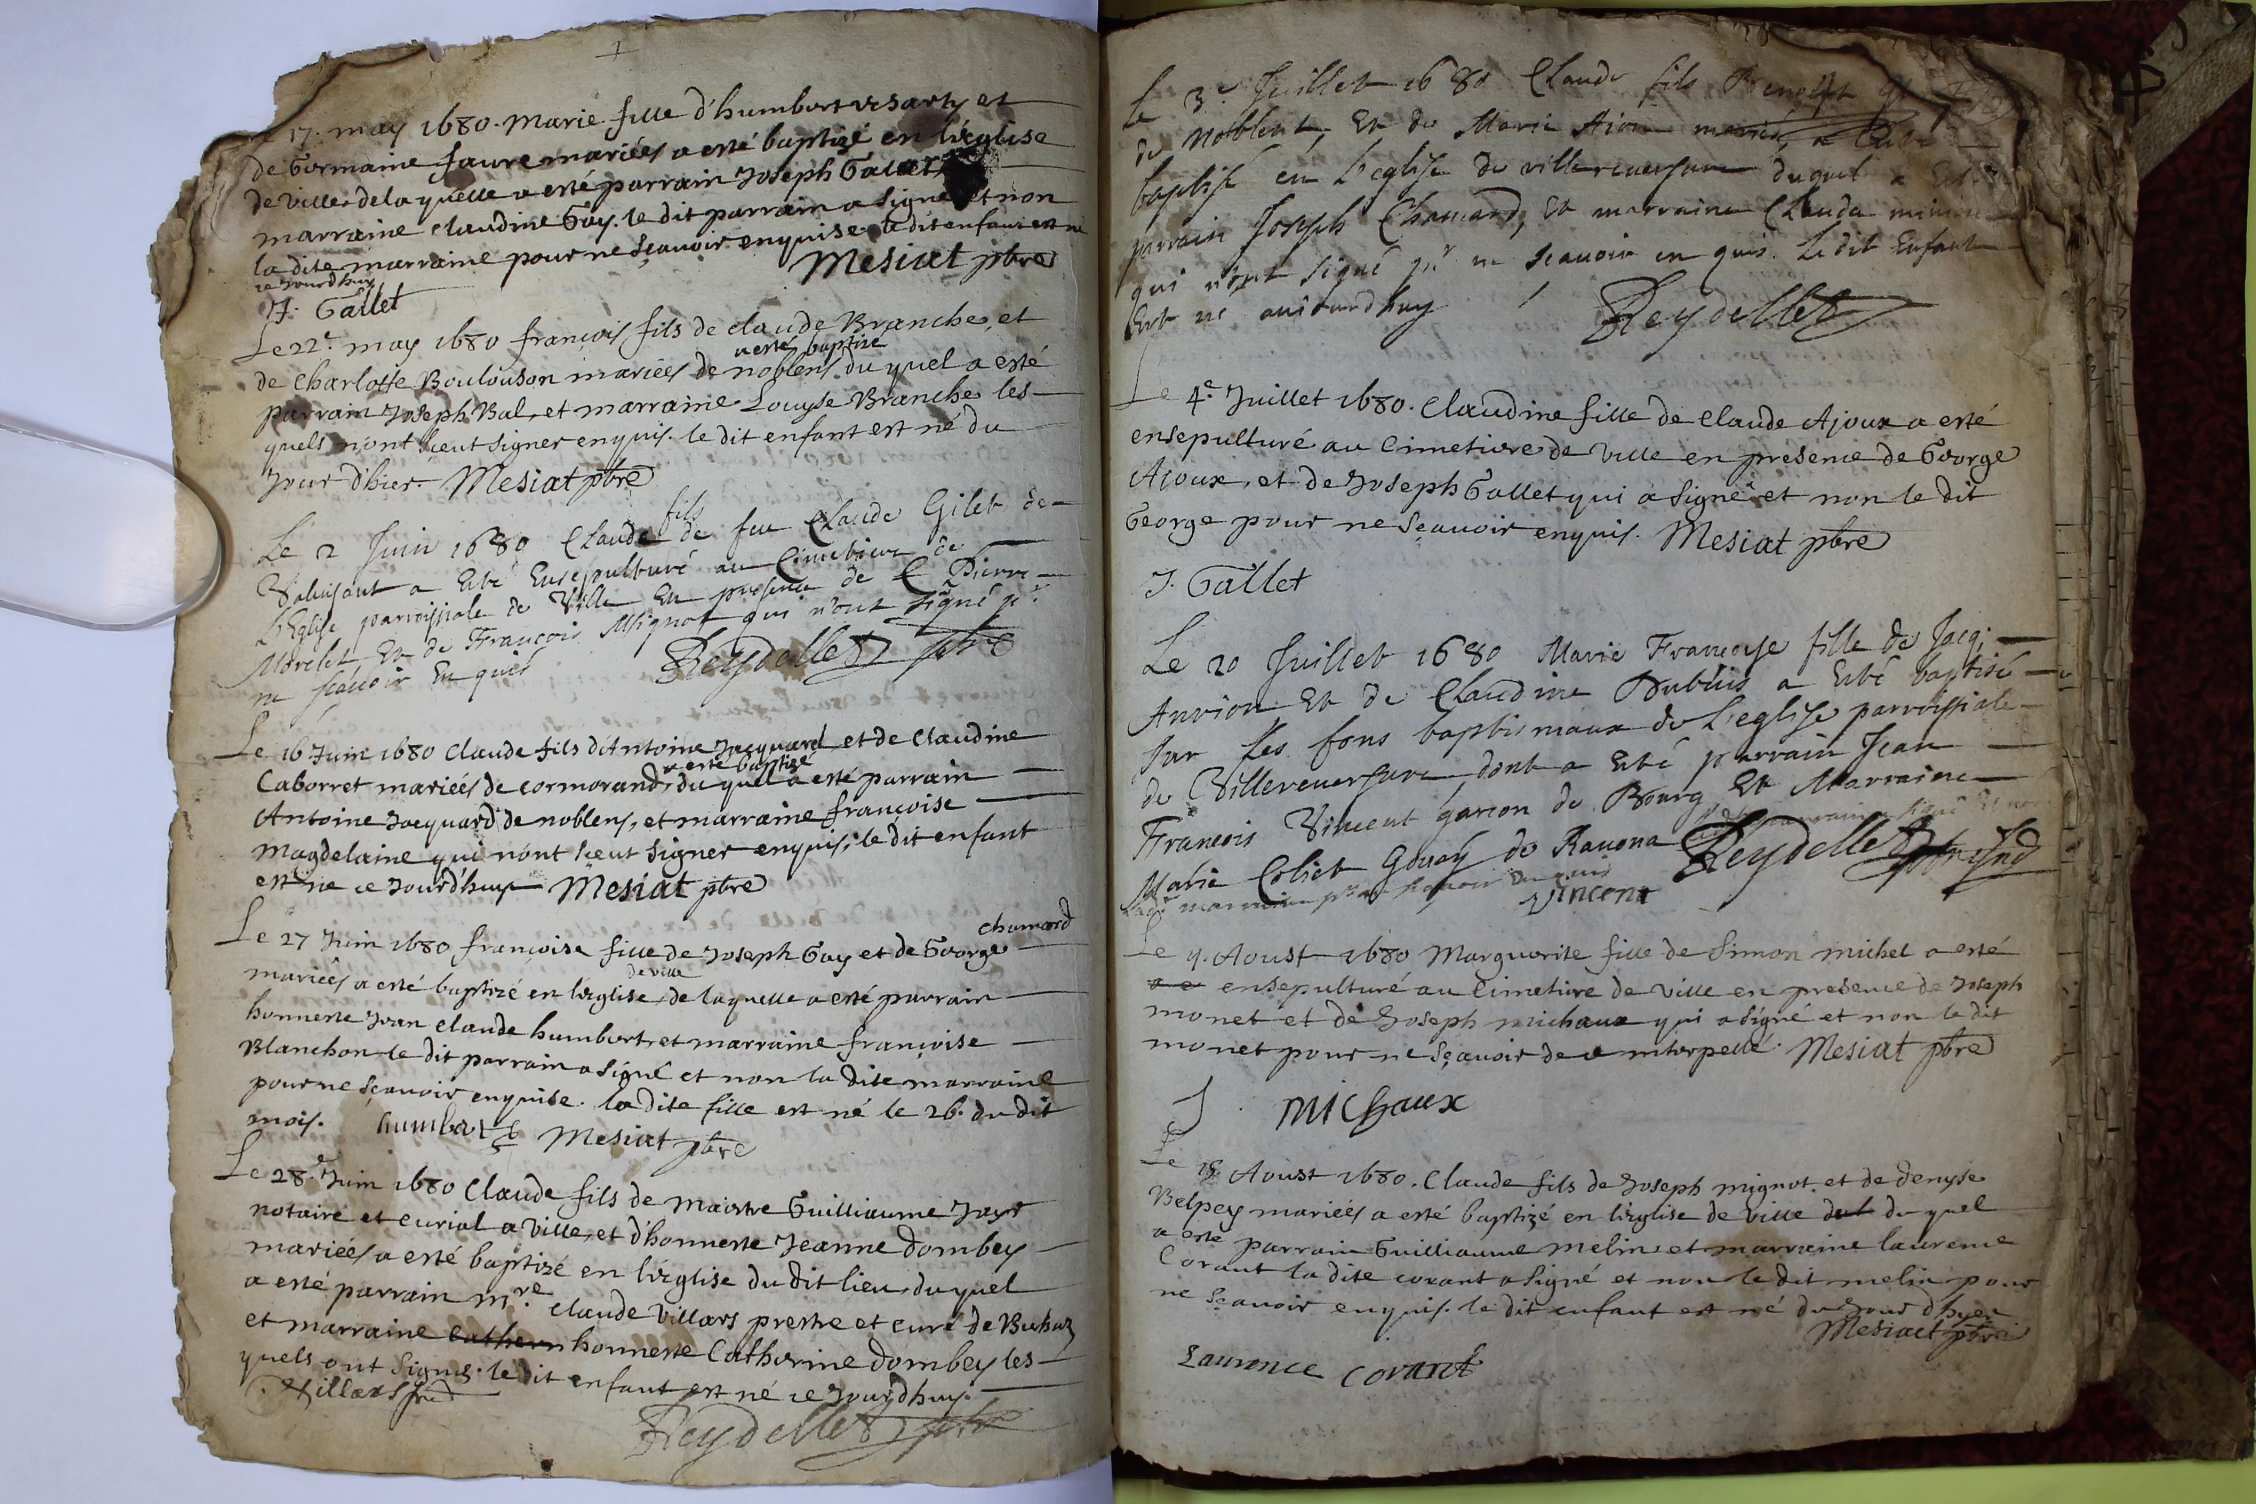 17. may 1680. Marie fille d'humbert et
de Germaine faure mariées a esté baptizé en l'église
de ville. de laquelle a esté parrain Joseph Gallet
marraine claudine Gay. le dit parrain a signé et non
la dite marraine pour ne sçavoir enquise. le dit enfant est né
ce jourd'huy Mesiat pbre
J. Gallet
Le 22e may 1680 françois fils de claude Branche, et
a esté baptizé
de charlotte Boulouson mariées de noblens du quel a esté
parrain Joseph Bal, et marraine Louyse Branche les
quels n'ont sçeut signer enquis. le dit enfant est né du
Jour d'hier Mesiat pbre
fils
Le 2 Juin 1680 Claude de feu Claude Gilet de
a Esté Ensepulturé au Cimetiere de
L'Eglise parroissiale de Ville En presence de C Pierre
Morelet, Et de François Mignot qui n'ont signé pr
ne scavoir Enquis Reydellet pbre
Le 16 Juin 1680 claude fils d'Antoine Jacquard et de claudine
a esté baptizé
Caborret mariées de cormorand, du quel a esté parrain
Antoine Jacquard de noblens, et marraine françoise
Magdelaine qui n'ont sçeut signer enquis. le dit enfant
est né ce Jourd'huy Mesiat pbre
chumard
Le 27 Juin 1680 françoise fille de Joseph Gay et de George
de ville
mariées a esté baptizé en l'église, de laquelle a esté parrain
honneste Jean claude humbert, et marraine françoise
Blanchon le dit parrain a signé et non la dite marraine
pour ne sçavoir enquise. la dite fille est né le 26. du dit
mois. humbert Mesiat pbre
Le 28e Juin 1680 Claude fils de maistre Guilliaume Jayr
notaire et curial a Ville, et d'honneste Jeanne dombey
mariées a esté baptizé en l'église du dit lieu, du quel
a esté parrain mre claude Villars prestre et curé de Buhuz
et marraine cathern honneste Catherine dombey les
quels ont signés. le dit enfant est né ce Jourd'huy.
Villars
Reydellet pbre
Le 3e Juillet 1680 Claude fils Benoist
de Noblent, Et de Marie Ajoux mariés, a Esté
baptisé en L'eglise de villereversure duquel a Esté
parrain Joseph Chamard, Et marraine Clauda
qui n'ont signé pr ne scavoir en quis. Le dit Enfant
Est né auiourdhuy Reydellet
Le 4e Juillet 1680. claudine fille de claude Ajoux a esté
ensepulturé au cimetiere de ville en presence de George
Ajoux, et de Joseph Gallet qui a signé et non le dit
George pour ne sçavoir enquis. Mesiat pbre
J. Gallet
Le 20 Juillet 1680 Marie Françoyse fille de Jacq;
Anvion Et de Claudine Dubuis a Esté baptisé
sur Les fons baptismaux de L'eglise parroissiale
de Villereversure dont a Esté parrain Jean
François Vincent garcon de Bourg Et Marraine
Marie Coliet Gouay de Ravona
Reydellet
Vincent
Le 9. Aoust 1680 Marguerite fille de Simon michel a esté
a e ensepulturé au cimetiere de ville en presence de Joseph
monet et de Joseph michaux qui a signé et non le dit
monet pour ne sçavoir de ce interpellé. Mesiat pbre
J. Michaux
Le 18 Aoust 1680. Claude fils de Joseph mignot. et de denyse
Belpey mariées a esté baptizé en l'église de ville dul du quel
a esté parrain Guilliaume melin, et marraine laurence
Corant la dite corant a signé et non le dit melin pour
ne sçavoir enquis. le dit enfant est né du jour d'hyer
Mesiat pbre
Laurence corant